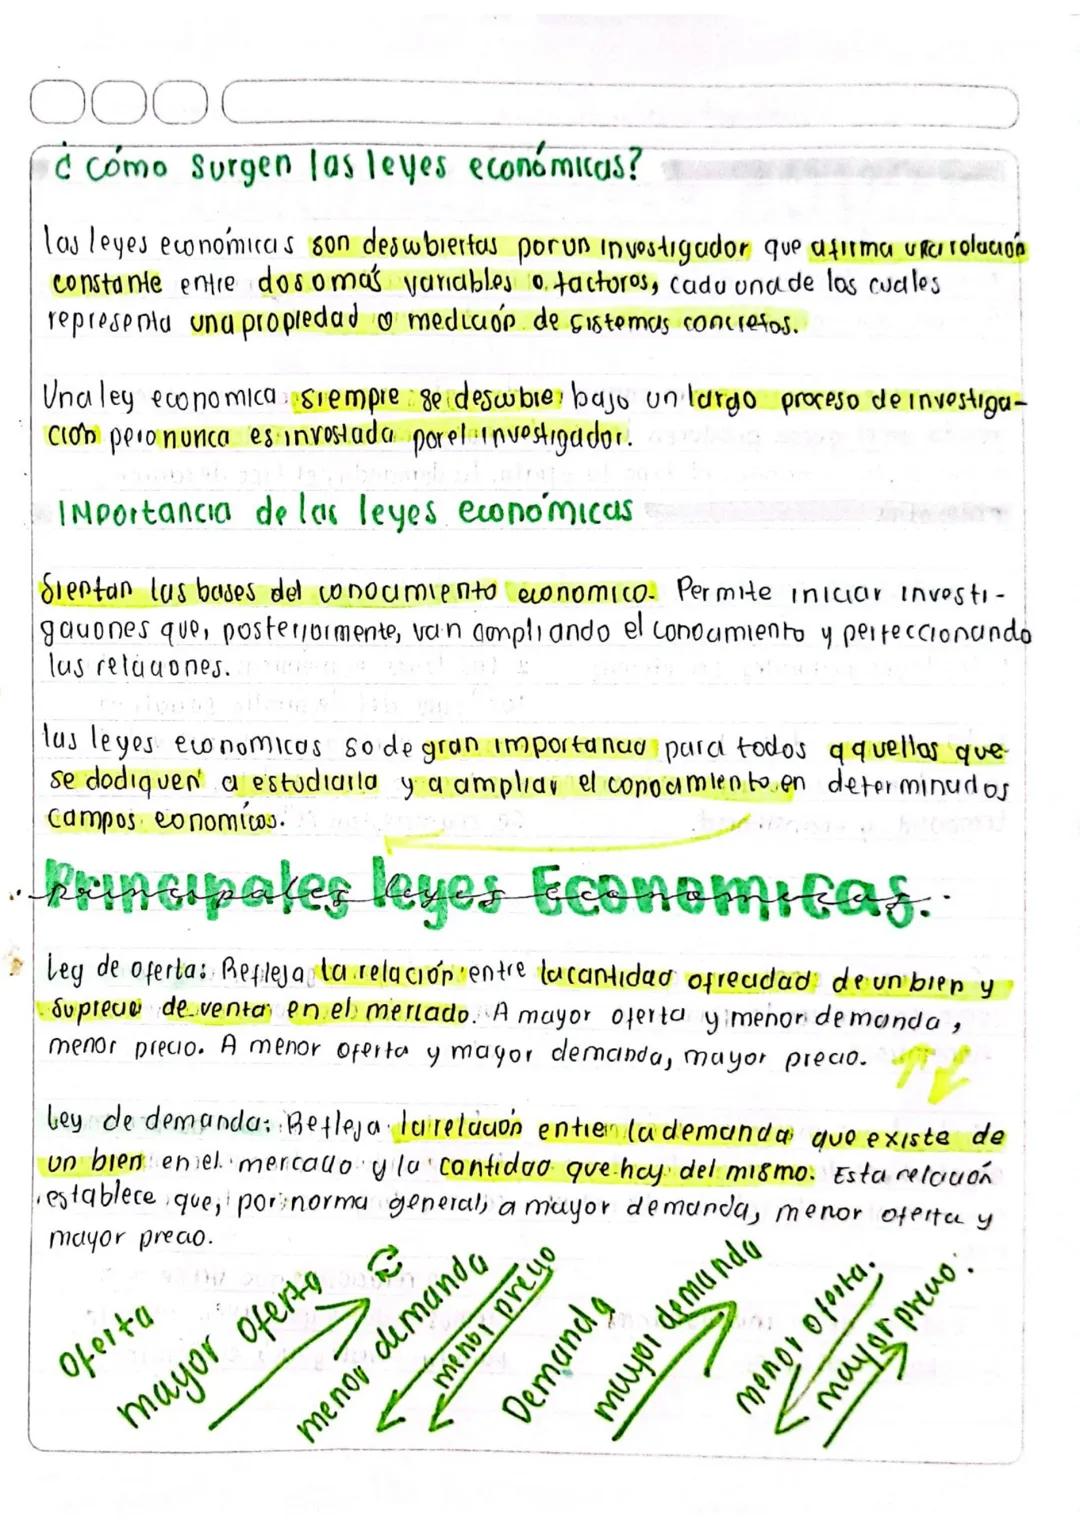 ¿ cómo surgen las leyes económicas?
las leyes económicas son descubiertas por un investigador que afirma una relación
constante entre dos o más variables o factores, cada una de las cuales
representa una propiedad o medición de sistemas concretos.
Una ley economica siempre se descubre bajo un largo proceso de investiga-
ción pero nunca es inventada por el investigador.
Importancia de las leyes económicas
Sientan las bases del conocimiento economico. Permite iniciar investi-
gaciones que, posteriormente, van ampliando el conocimiento y perfeccionando
las relaciones.
las leyes economicas so de gran importancia para todos aquellos que
se dediquen a estudiarla y a ampliar el conocimiento en determinados
campos economicos.
Principales leyes Economicas.
principales leyes economicas.
Ley de oferta: Refleja la relación entre la cantidad ofrecidad de un bien y
su precio de venta en el mercado. A mayor oferta y menor demanda,
menor precio. A menor oferta y mayor demanda, mayor precio.
Ley de demanda: Refleja la relación entre la demanda que existe de
un bien en el mercado y la cantidad que hay del mismo. Esta relación
establece que, por norma general, a mayor demanda, menor oferta y
mayor precio.
Oferta
mayor oferta
menor demanda
menor precio
Demanda
mayor demanda
menor oferta.
mayor precio.